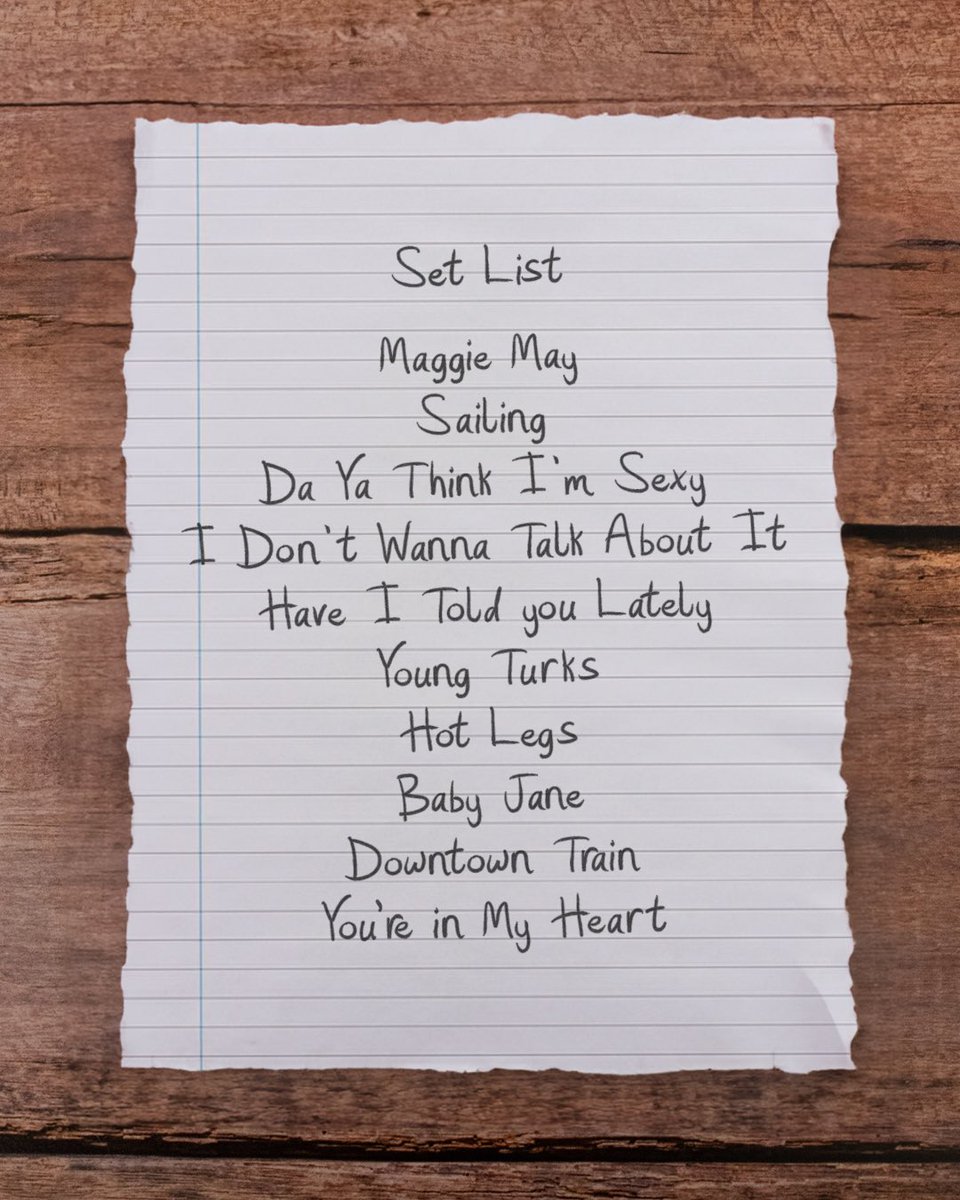 Set List
Maggie May
Sailing
Da Ya Think I'm Sexy
I Don't Wanna Talk About It
Have I Told you Lately
Young Turks
Hot Legs
Baby Jane
Downtown Train
You're in My Heart